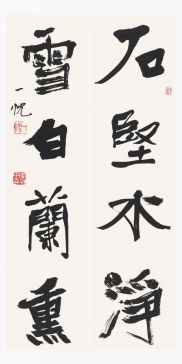 石堅水淨
雪白蘭熏
一忱